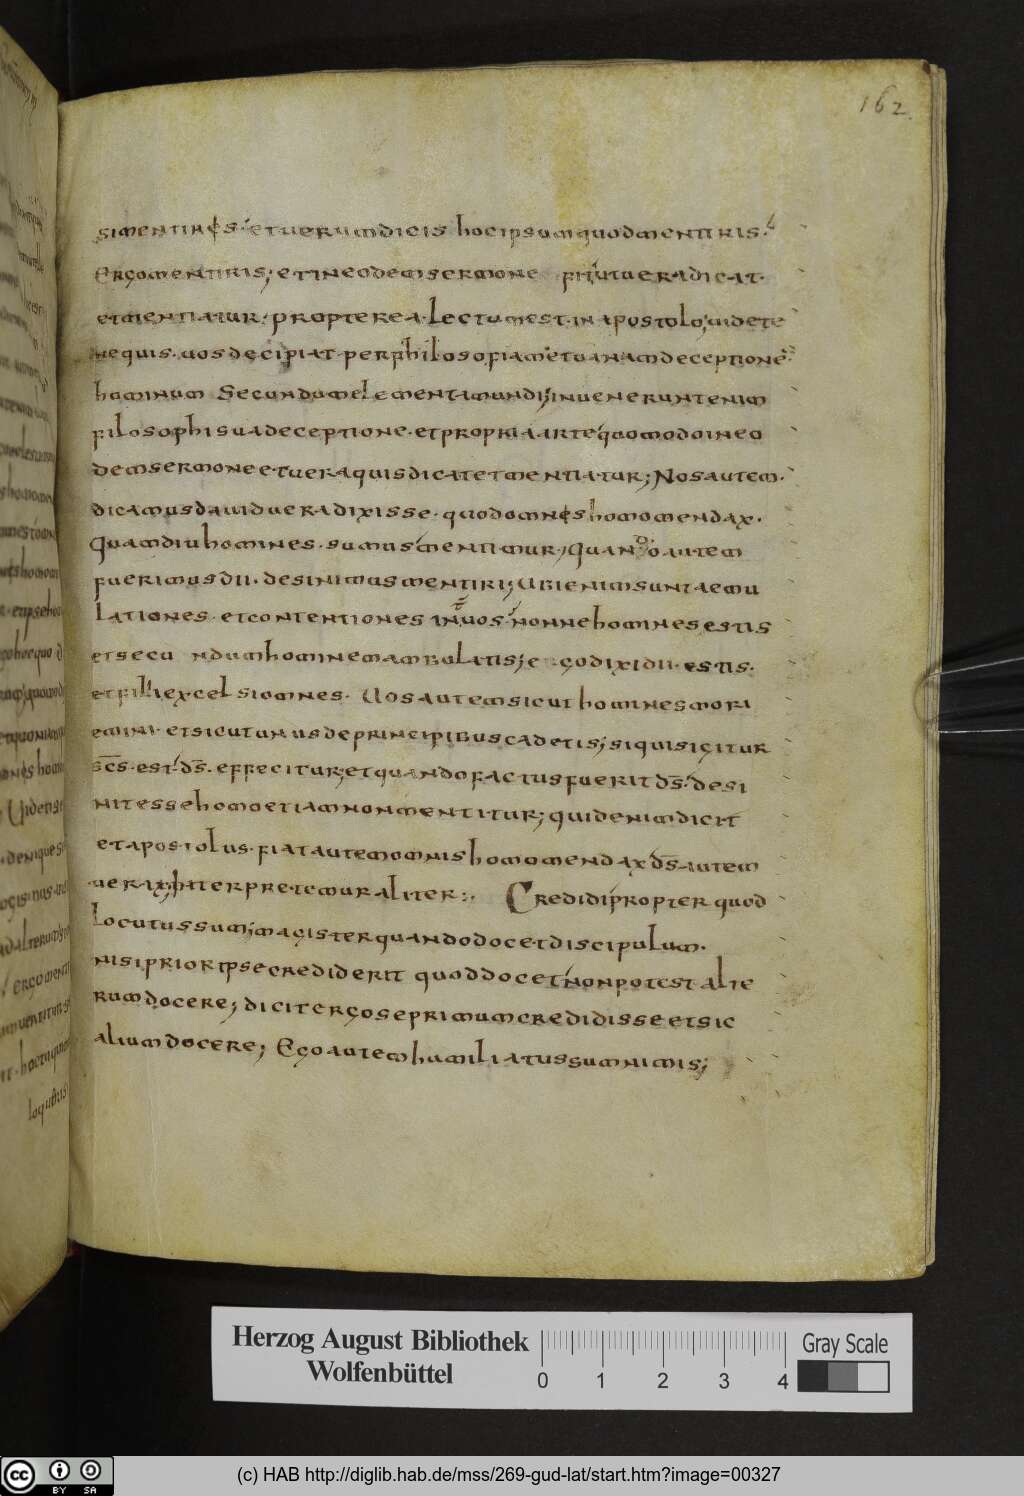 162.
simentires et uerum dicis hoc ipsum quod mentiris.
Ergo mentiris; et in eodem sermone fit ut uera dicat.
et mentiatur. propterea. Lectum est. in apostolo, uidete
ne quis. uos decipiat. per philosofiam et uanam deceptione.
hominum Secundum elementa mundi; inuenerunt enim
filosophi sua deceptione. et propria arte quomodo in eo
dem sermone et uera quis dicat et mentiatur; Nos autem.
dicamus dauid uera dixisse. quod omnes homo mendax.
Quamdiu homines. sumus mentimur; Quando autem
fuerimus dii. desinimus mentiri; Ubi enim sunt aemu
lationes. et contentiones inter uos. nonne homines estis
et secundum hominem ambulatis; ego dixi dii. estis.
et filii excelsi omnes. Uos autem sicut homines mori
emini. et sicut unus de principibus cadetis; si quis igitur
scs. est. ds. effecitur; et quando factus fuerit ds. desi
nit esse homo etiam non mentitur; quid enim dicit
et apostolus. fiat autem omnis homo mendax ds autem
uerax; Interpretemur aliter:. Credidi propter quod
locutus sum; magister quando docet discipulum.
nisi prior ipse crediderit quod docet non potest alte
rum docere; dicit ergo se primum credidisse et sic
alium docere; Ego autem humiliatus sum nimis;
Herzog August Bibliothek
Wolfenbüttel
0 1 2 3 4
Gray Scale
cc BY SA
(c) HAB http://diglib.hab.de/mss/269-gud-lat/start.htm?image=00327